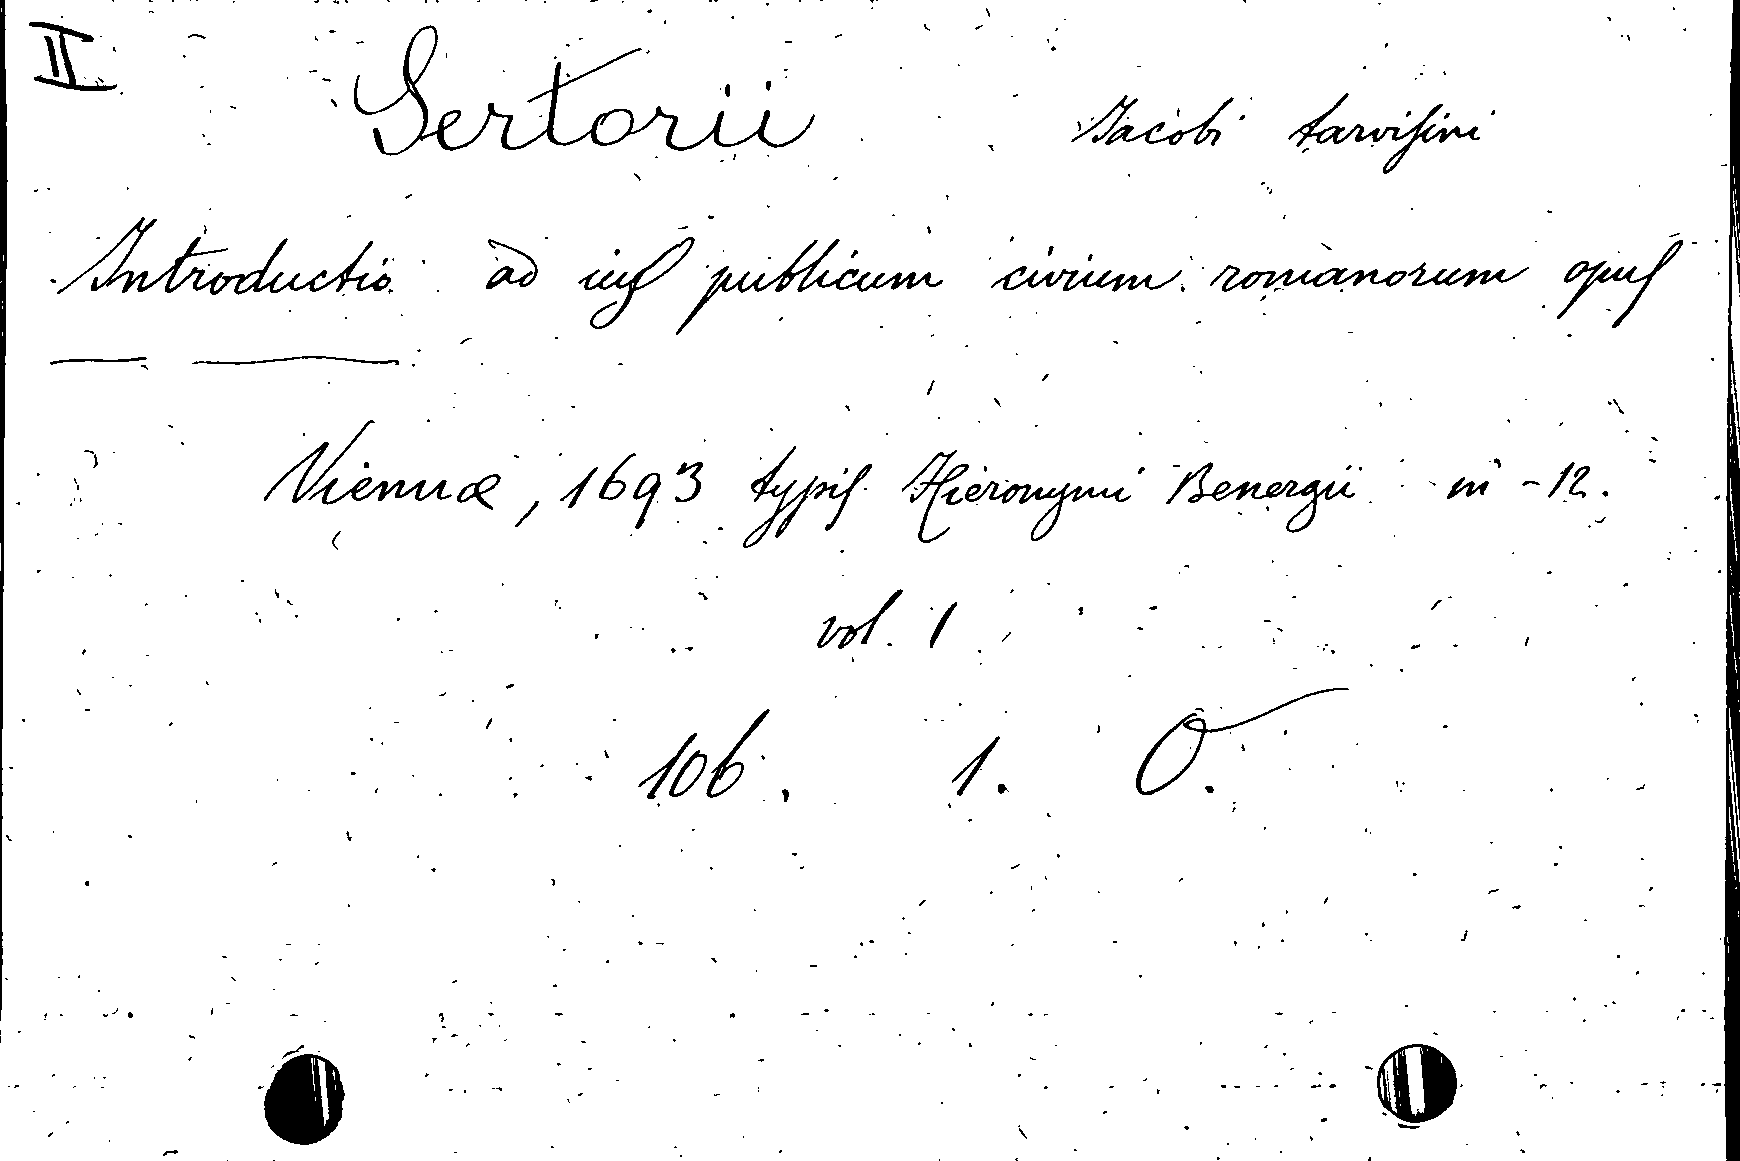 II
Sertorii Jacobi tarvisini
Introductio ad ius publicum civium romanorum opus
Viennæ, 1693 typis Hieronymi Benergii in-12.
vol. 1
106. 1. O.